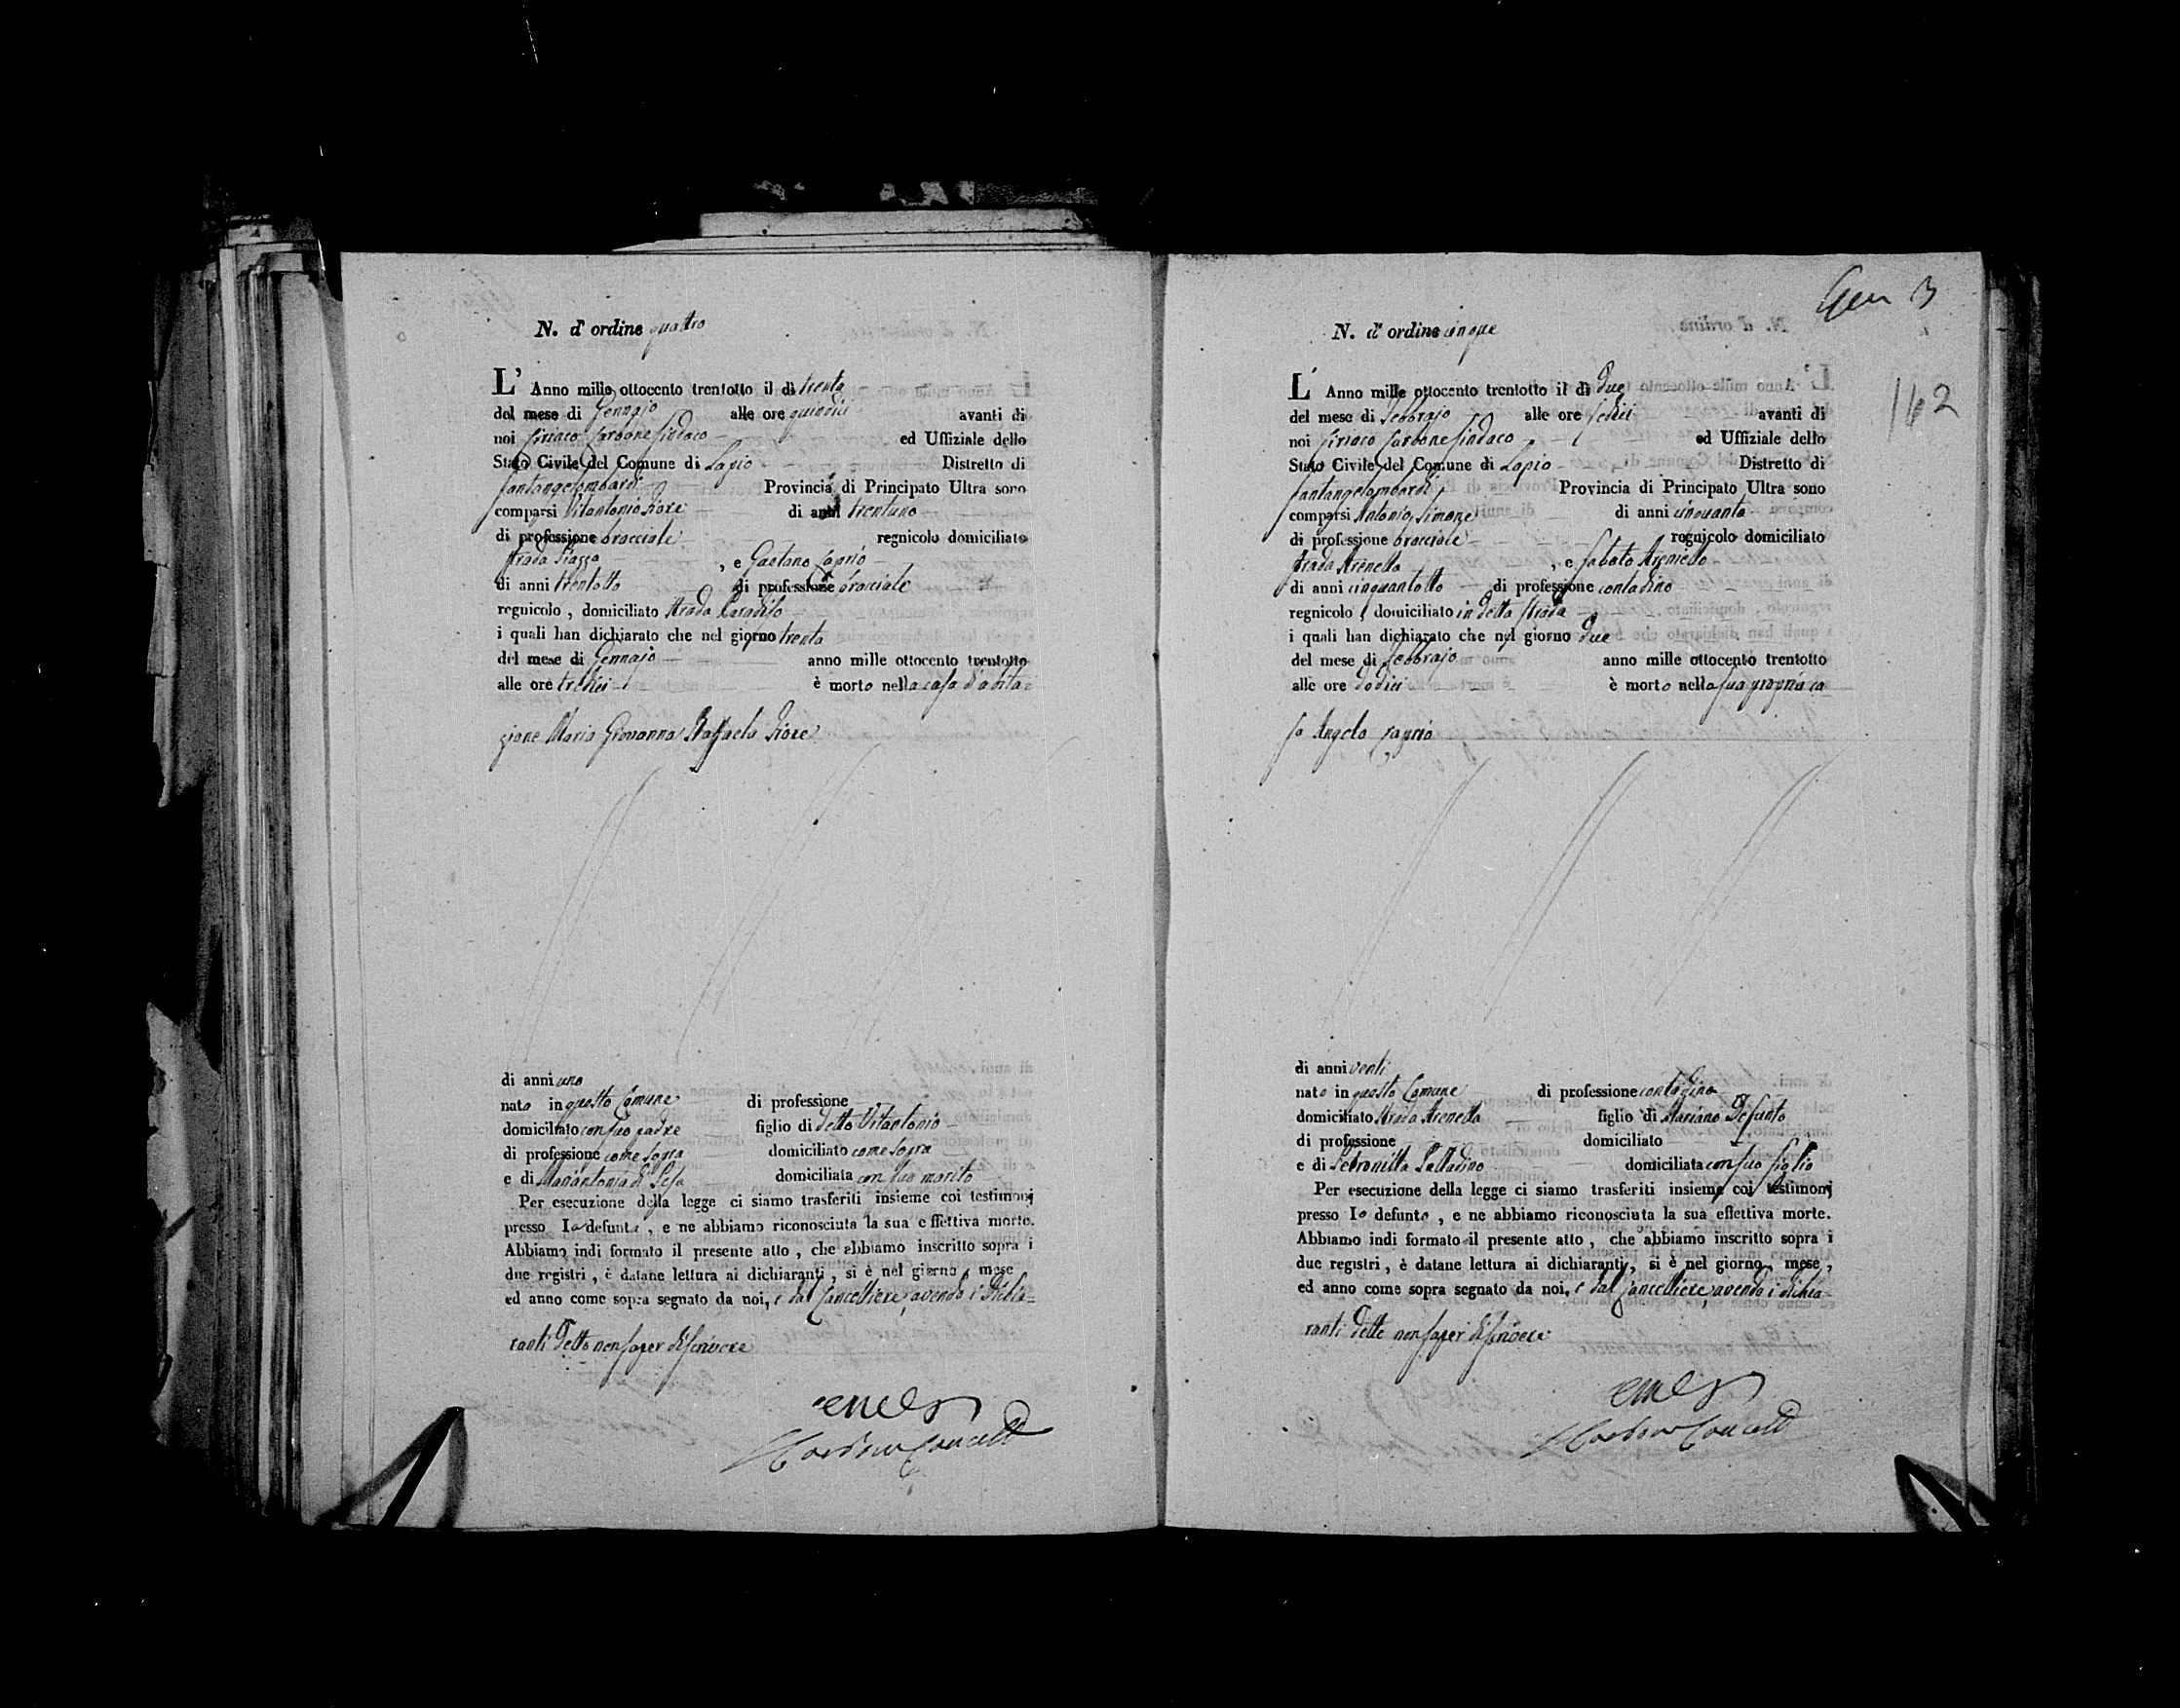 N. d' ordine quattro
L' Anno mille ottocento trentotto il dì trenta
del mese di Gennajo alle ore quindici avanti di
noi Ciriaco Carbone Sindaco ed Uffiziale dello
Stato Civile del Comune di Lapio Distretto di
Santangelombardi Provincia di Principato Ultra sono
comparsi Vitantonio Fiore di anni trentuno
di professione bracciale regnicolo domiciliato
strada Piazza , e Gaetano Caprio
di anni trentotto di professione bracciale
regnicolo , domiciliato strada Paradiso
i quali han dichiarato che nel giorno trenta
del mese di Gennajo anno mille ottocento trentotto
alle ore tredici è morto nella casa d'abita=
zione Maria Giovanna Raffaela Fiore
di anni uno
nato in questo Comune di professione
domiciliato con suo padre figlio di detto Vitantonio
di professione come sopra domiciliato come sopra
e di Mariantonia di domiciliata con suo marito
Per esecuzione della legge ci siamo trasferiti insieme coi testimonj
presso la defunta , e ne abbiamo riconosciuta la sua effettiva morte.
Abbiamo indi formato il presente atto , che abbiamo inscritto sopra i
due registri , è datane lettura ai dichiaranti , si è nel giorno , mese
ed anno come sopra segnato da noi, e dal Cancelliere, avendo i dichia=
ranti detto non saper di scrivere
Gen 3
162
N. d' ordine cinque
L' Anno mille ottocento trentotto il dì due
del mese di Febbrajo alle ore sedici avanti di
noi Ciriaco Carbone Sindaco ed Uffiziale dello
Stato Civile del Comune di Lapio Distretto di
Santangelombardi Provincia di Principato Ultra sono
comparsi Antonio Simone di anni cinquanta
di professione bracciale regnicolo domiciliato
strada Arenella , e Sabato Argniello
di anni cinquantotto di professione contadino
regnicolo , domiciliato in detta strada
i quali han dichiarato che nel giorno due
del mese di Febbrajo anno mille ottocento trentotto
alle ore dodici è morto nella sua propria ca
sa Angelo Caprio
di anni venti
nato in questo Comune di professione contadino
domiciliato strada Arenella figlio di Mariano Defunto
di professione domiciliato
e di Petronilla Palladino domiciliata con suo figlio
Per esecuzione della legge ci siamo trasferiti insieme coi testimonj
presso lo defunto , e ne abbiamo riconosciuta la sua effettiva morte.
Abbiamo indi formato il presente atto , che abbiamo inscritto sopra i
due registri , è datane lettura ai dichiaranti, si è nel giorno, mese ,
ed anno come sopra segnato da noi, e dal Cancelliere, avendo i dichia=
ranti detto non saper di scrivere